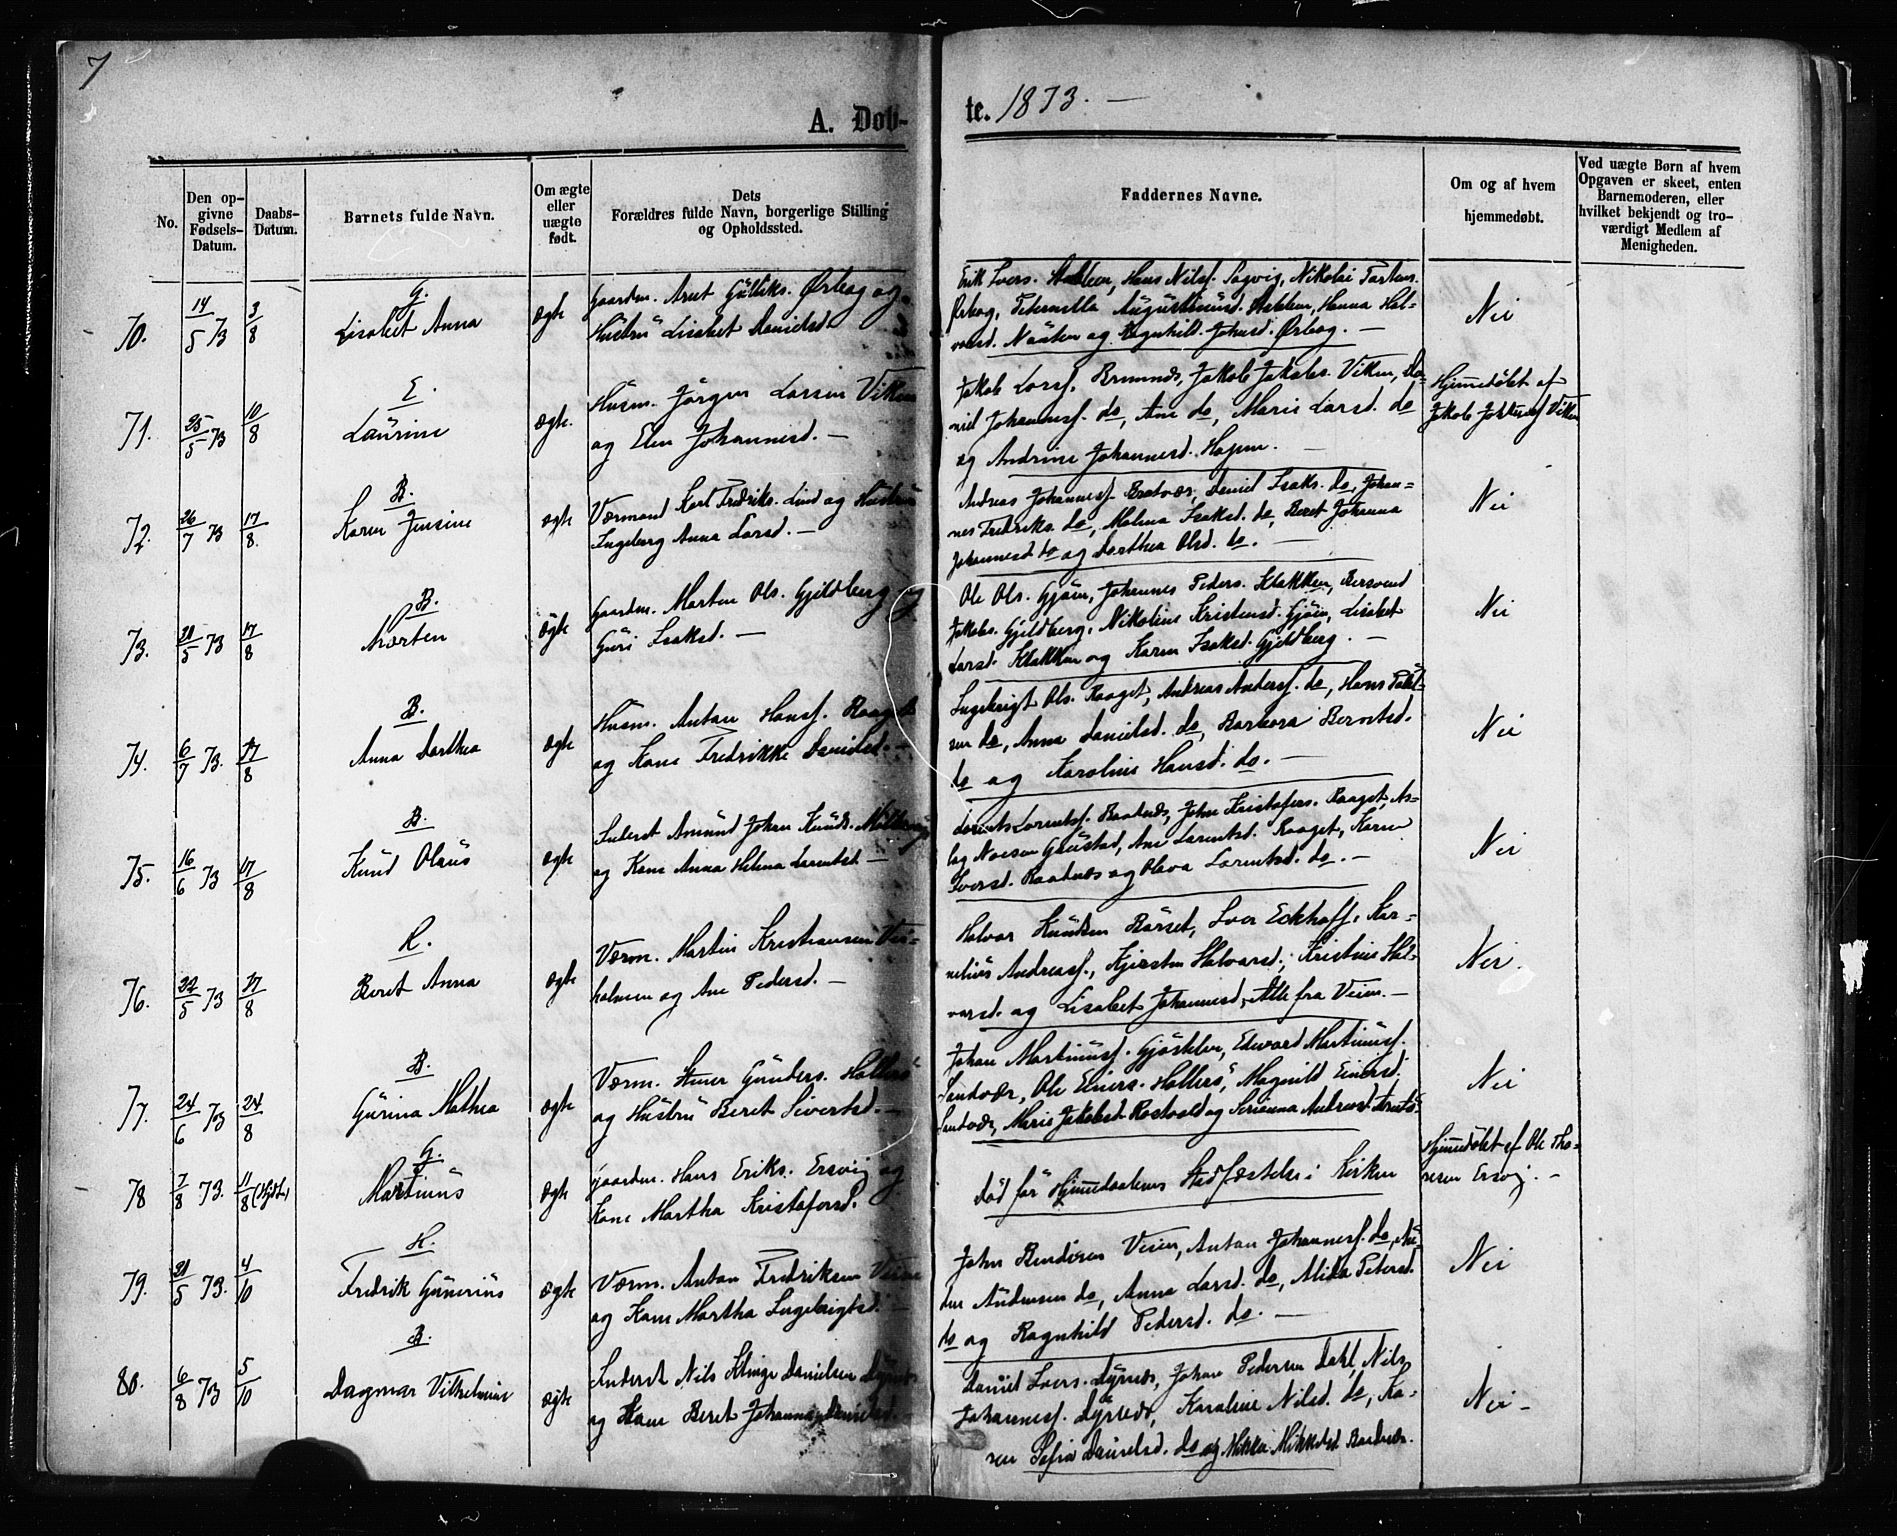 7
A. Døb-
te. 1873. —
No.
Den op-
givne
Fødsels-
Datum.
Daabs-
Datum.
Barnets fulde Navn.
Om ægte
eller
uægte
født.
Dets
Forældres fulde Navn, borgerlige Stilling
og Opholdssted.
Faddernes Navne.
Om og af hvem
hjemmedøbt.
Ved uægte Børn af hvem
Opgaven er skeet, enten
Barnemoderen, eller
hvilket bekjendt og tro-
værdigt Medlem af
Menigheden.
G.
70. 14/5 73 3/8 Lisabet Anna ægte
Gaardm. Arnt Gulliks. Ørbog og
Hustru Lisabet Danielsd.
Erik Ivers. Hans Nilsf. Sagvig, Nikolai
Ørbog, Peternilla Augustinusd. Hanna Hal-
vorsd. og Ragnhild Johnsd. Ørbog. —
Nei
E.
71. 25/5 73 10/8 Laurine ægte.
Husm. Jörgen Larsen Viken
og Elen Johannesd. —
Jakob Larsf. Jakob Jakobs. Viken, Da-
niel Johannesf. do, Ane do, Marie Larsd. do
og Andrine Johannesd. Hopen.
Hjemmedøbt af
Jakob Viken
B.
72. 26/7 73 17/8. Karen Jensine ægte
Værmand Karl Fredriks. Lind og Hustru
Ingeborg Anna Larsd. —
Andreas Johannesf. Bratvær, Daniel Isaks. do, Johan-
nes Fredriks. do, Malena Isaksd. do, Beret Johanna
Johannesd. do og Dorthea Olsd. do. —
Nei
B.
73. 20/5 73 17/8 Morten ægte
Gaardm. Morten Ols. Gjeldberg og
Guri Isaksd. —
Ole Ols. Gjöen, Johannes Peders. Klakken, Bersvend
Jakobs. Gjeldberg, Nikoline Kristensd. Gjöen, Lisabet
Larsd. Klakken og Karen Isaksd. Gjeldberg. —
Nei
B.
74. 6/7 73. 17/8 Anna Dorthea ægte
Husm. Anton Hansf. Raaget
og Kone Fredrikke Danielsd. —
Ingebrigt Ols. Raaget, Andreas Andersf. do, Hans
sen do, Anna Danielsd. do, Barbara Berntsd.
do og Karoline Hansd. do. —
Nei
B.
75. 16/6 73 17/8 Knud Olaus ægte
Inderst Amund Johan Knuds.
og Kone Anna Helena Larentsd. —
Lorents Lorentsf. John Kristofers. Raaget, As-
lag Gaustad, Ane Lorentsd. Raaget, Karen
Iversd. og Olava Lorentsd. do. —
Nei
R.
76. 22/5 73 17/8 Beret Anna ægte
Værm. Martin Kristiansen Vei-
holmen og Ane Pedersd. —
Halvor Knudsen Börset, Iver Eckhoff, Kor-
nelius Andreasf., Kjersten Halvorsd., Kristine Hal-
vorsd. og Lisabet Johannesd, Alle fra Veien. —
Nei.
B.
77. 24/6 73 24/8 Gurina Mathea ægte
Værm. Gunders. Hallerö
og Hustru Beret Sivertsd. —
Johan Martinusf. Edvard Martinusf.
Sandvær, Ole Einers. Hallerö, Magnild Einersd.
Sandvær, Marie Jakobsd. Rostvold og Serianna Andreasd.
Nei
G.
78 7/8 73. 11/8 (Hjdt.) Martinus ægte
Gaardm. Hans Eriks. Ersvig og
Kone Martha Kristofersd.
Död för Hjemmedaabens Stadfæstelse i Kirken
Hjemmedøbt af Ole Tho-
resen Ersvig. —
H.
79. 20/5 73. 4/10 Fredrik Gunerius ægte
Værm. Anton Fredriksen Veien
og Kone Martha Ingebrigtsd. —
John Bendixen Veien, Anton Johannesf. do,
Andersen do, Anna Larsd. do, Alida Petersd.
do og Ragnhild Pedersd. do —
Nei
B.
80. 6/8 73 5/10 Dagmar Vilhelmine ægte
Inderst Nils Klinge Danielsen Dyrnes
og Kone Beret Johanna Danielsd. —
Daniel Ivers. Dyrnes, Johan Pedersen Dahl, Nils
Johannesf. Dyrnes, Karoline Nilsd. do, Ka-
ren Sofia Danielsd. do og Mikka Mikkelsd.
Nei —